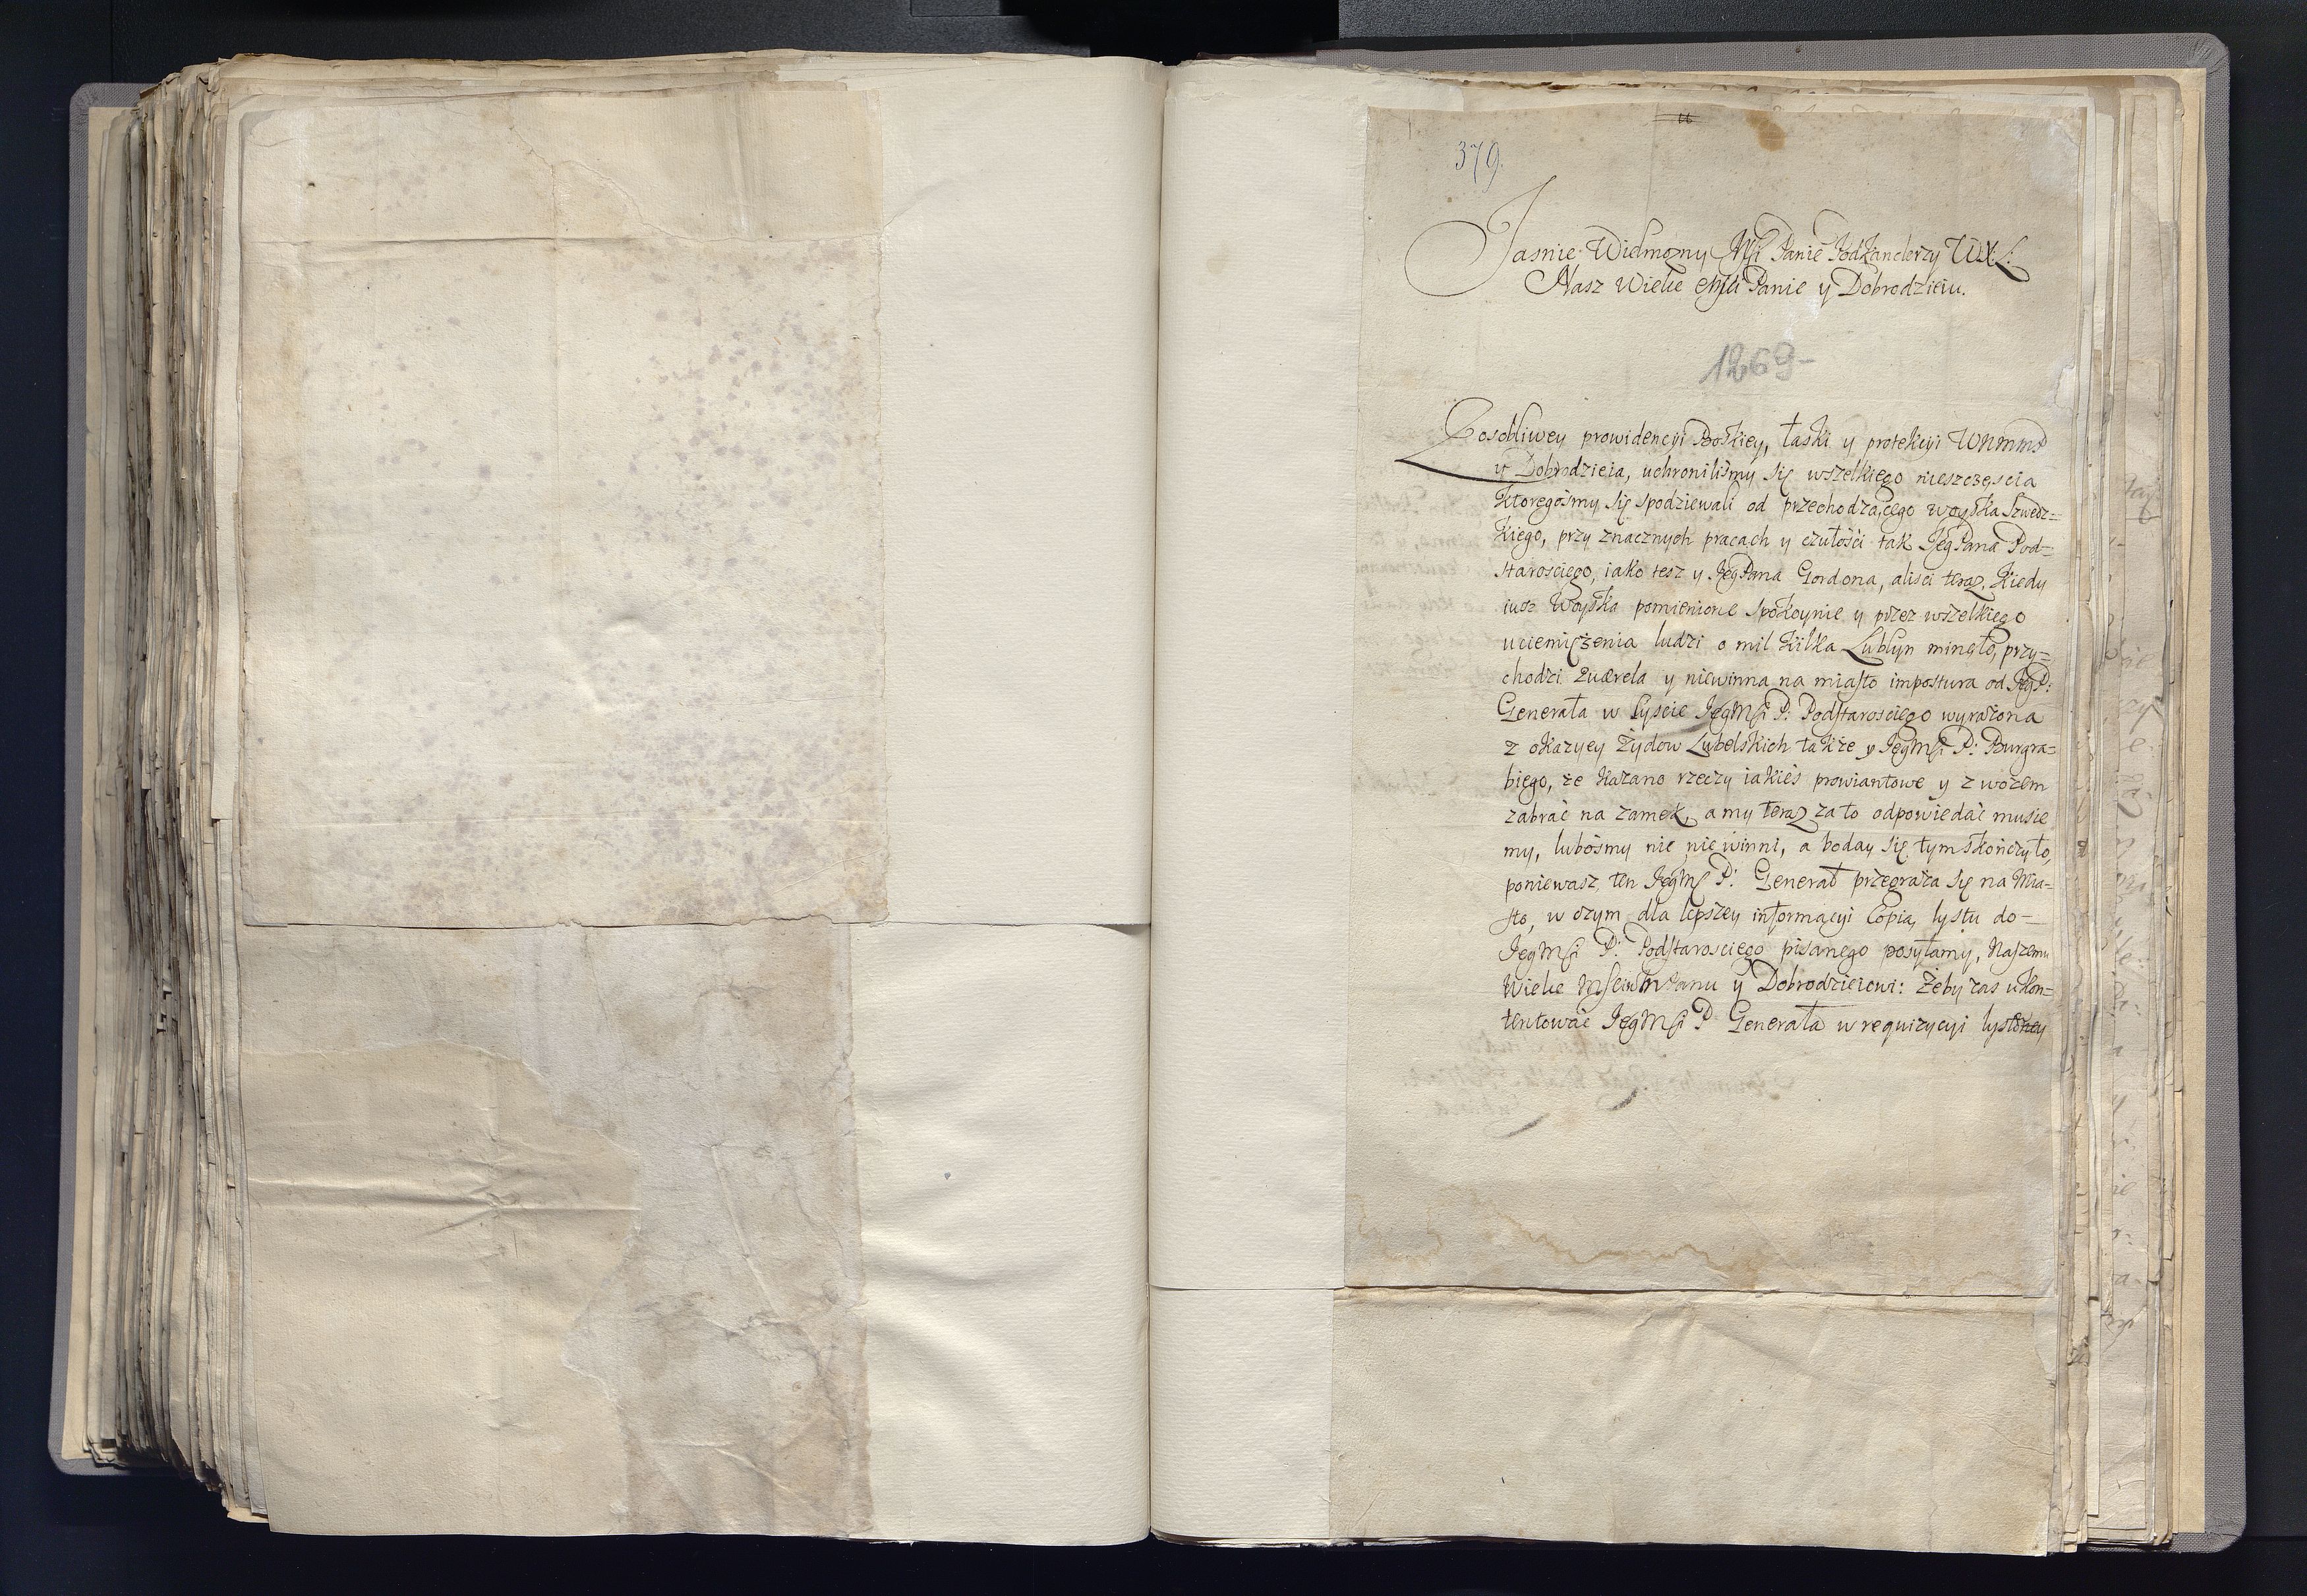 379.
Jasnie Wielmozny Mśi Panie Podkanclerzy W.X.L:
Nasz Wielce Mśći Panie y Dobrodzieiu.
1269-
Z osobliwey prowidencyi Boskiey, łaski y protekcyi WNMMP
y Dobrodzieia, uchroniliśmy się wszelkiego nieszczęscia
ktoregośmy się spodziewali od przechodzącego woyska Szwedz=
kiego, przy znacznych pracach y czułości tak JegPana Pod=
starosciego, iako tesz y JegPana Gordona, alisci teraz kiedy
iusz Woyska pomienione spokoynie y przez wszelkiego
uciemiężenia ludzi o mil kilka Lublyn mineło, przy=
chodzi querela y niewinna na miasto impostura od JegP:
Generała w lyscie JegMśi P: Podstarosciego wyrażona
z okazyey Żydow Lubelskich także y JegMśi P: Burgra=
biego, że kazano rzeczy iakieś prowiantowe y z wozem
zabrać na zamek, a my teraz za to odpowiedać musie
my, lubośmy nic nie winni, a boday się tym skończyło,
poniewasz ten JegMś P: Generał przegraża się na Mia=
sto, w czym dla lepszey informacyi Copią lystu do-
JegMśi P: Podstarosciego pisanego posyłamy, Naszemu
Wielce Panu y Dobrodzieiowi: Żeby zas ukon=
tentować JegMśi P Generała w requizycyi